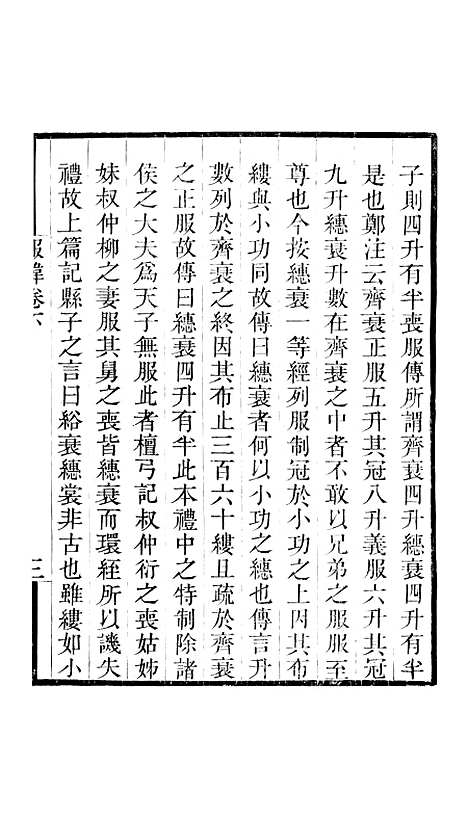 子則四升有半喪服傳所謂齊衰四升繐衰四升有半
是也鄭注云齊衰正服五升其冠八升義服六升其冠
九升繐衰升數在齊衰之中者不敢以兄弟之服服至
尊也今按繐衰一等經列服制冠於小功之上因其布
縷與小功同故傳曰繐衰者何以小功之繐也傳言升
數列於齊衰之終因其布止三百六十縷且疏於齊衰
之正服故傳曰繐衰四升有半此本禮中之特制除諸
侯之大夫爲天子無服此者檀弓記叔仲衍之喪姑姊
妹叔仲柳之妻服其舅之喪皆繐衰而環絰所以譏失
禮故上篇記縣子之言曰綌衰繐裳非古也雖縷如小
服緯卷下
三